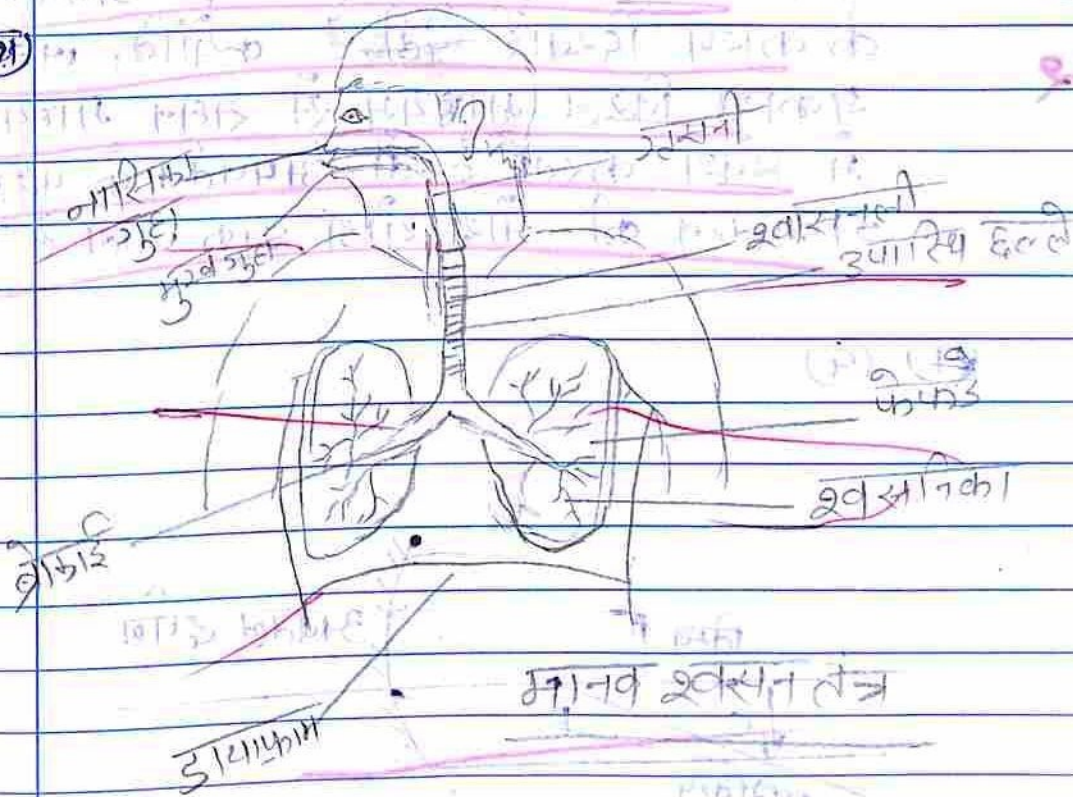 नासिका गुहा
मुखगुहा
ग्रसनी
श्वासनली
उपास्थि छल्ले
फेफडे
श्वसनिका
ब्रोकाई
डायाफ्राम
मानव श्वसन तंत्र